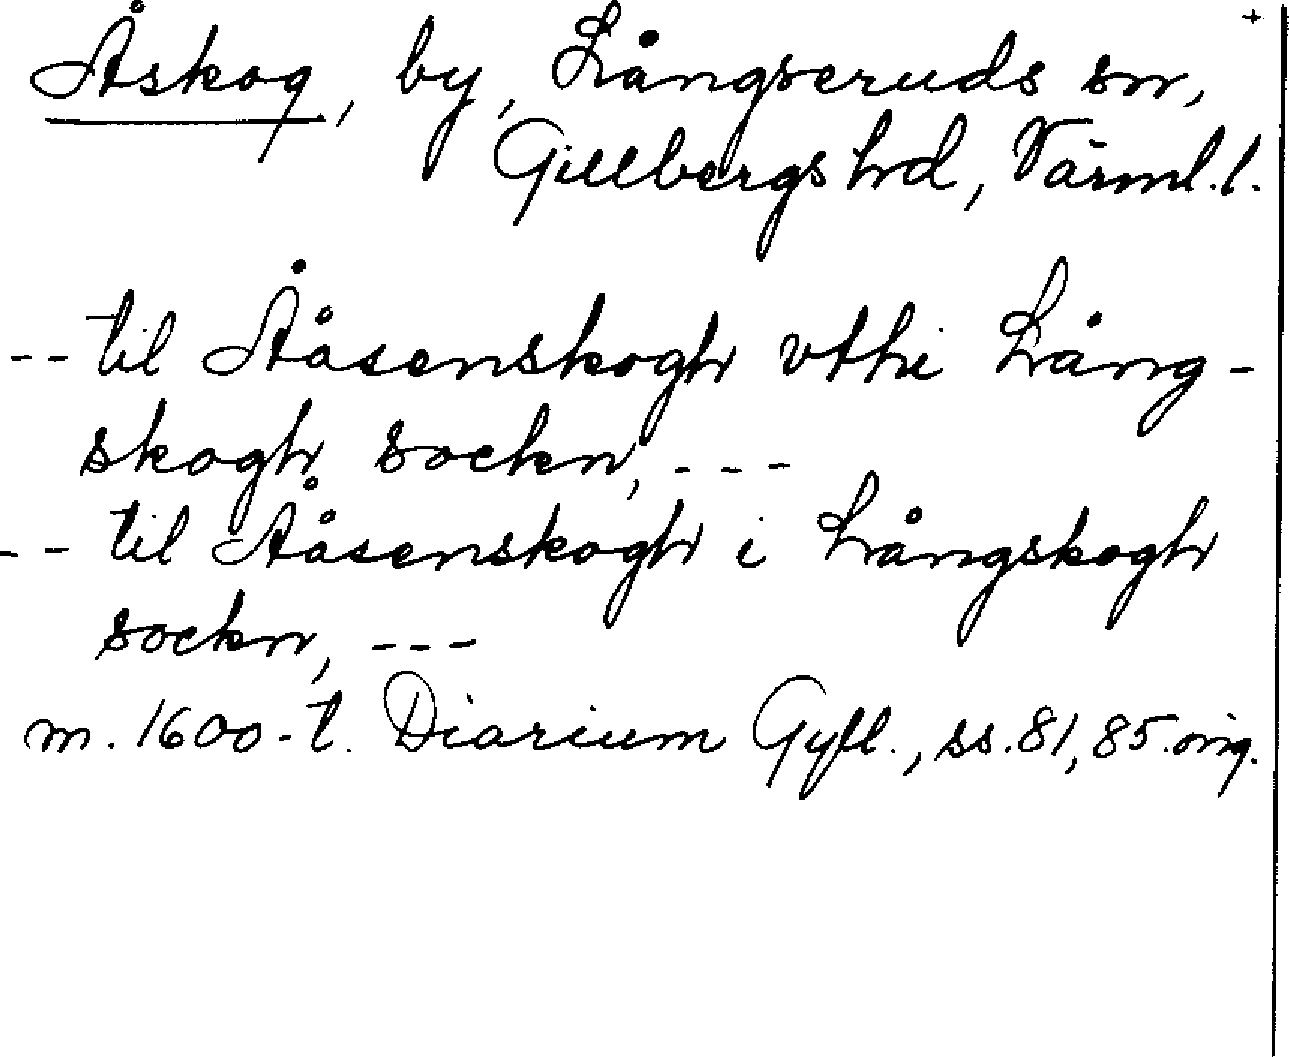 +
Åskog, by, Långseruds sn,
Gillbergs hd, Värml. l.
-- til Ååsenskogh vthi Lång-
skogh sockn, ---
-- til Ååsenskogh i Långskogh
sockn, ---
m. 1600-t. Diarium Gyll., ss. 81, 85. orig.